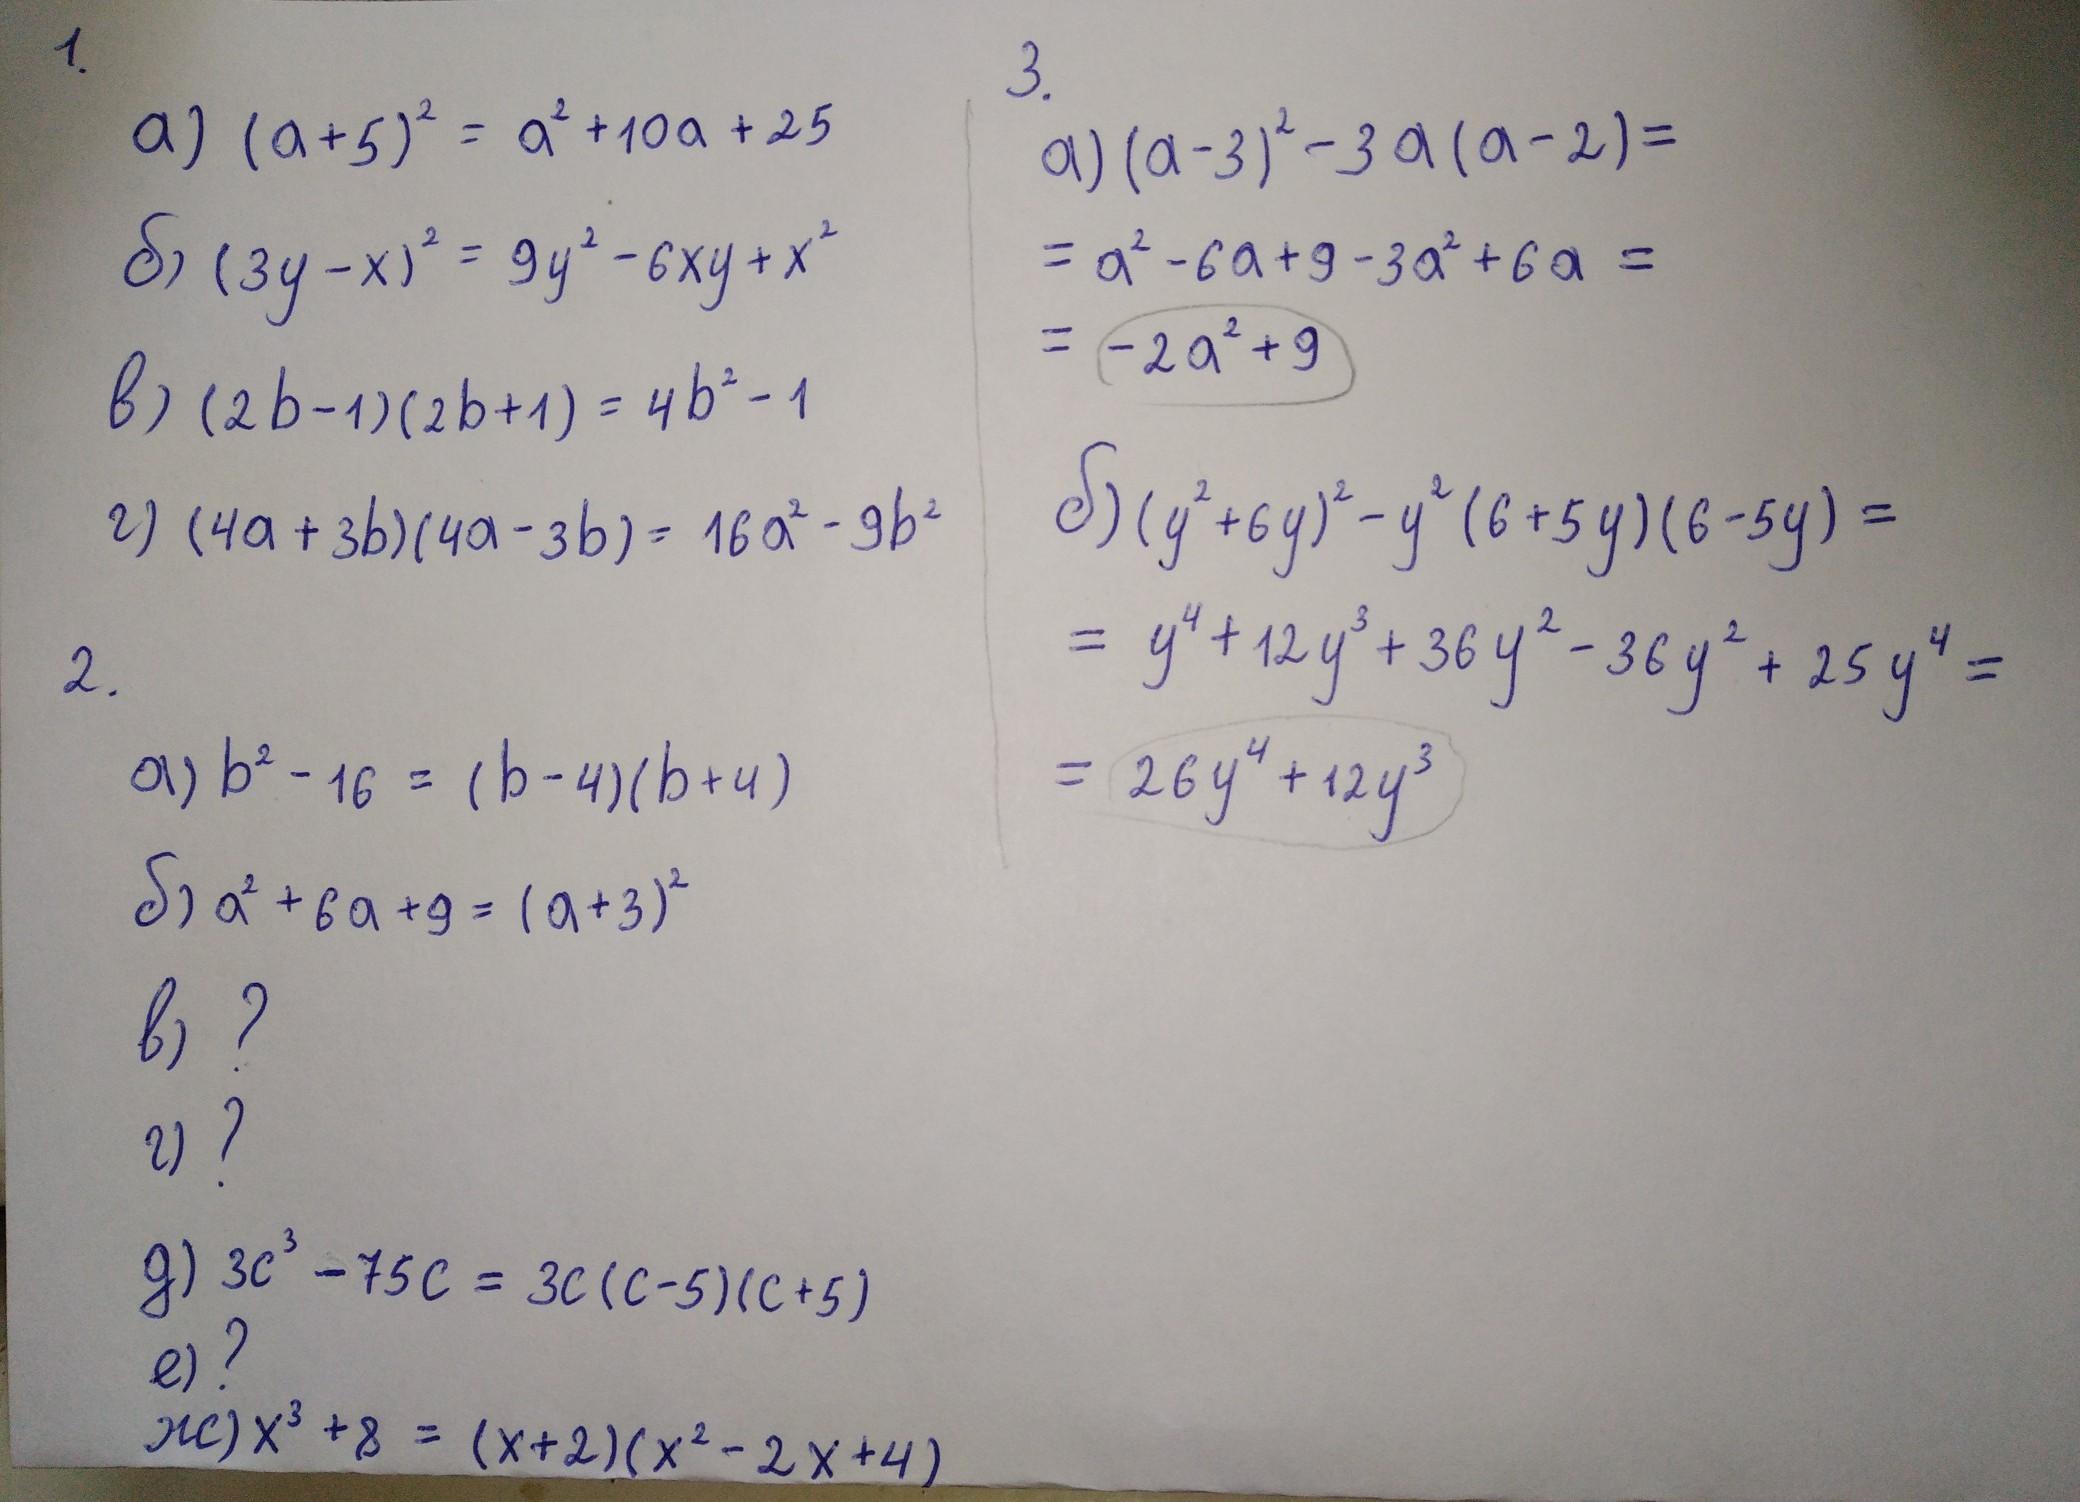 1.
а) (a+5)² = a² + 10a + 25
б) (3y - x)² = 9y² - 6xy + x²
в) (2b-1)(2b+1) = 4b² - 1
г) (4a + 3b)(4a - 3b) = 16a² - 9b²
2.
а) b² - 16 = (b-4)(b+4)
б) a² + 6a + 9 = (a+3)²
в) ?
г) ?
д) 3c³ - 75c = 3c(c-5)(c+5)
е) ?
ж) x³ + 8 = (x+2)(x² - 2x + 4)
3.
а) (a-3)² - 3a(a-2) =
= a² - 6a + 9 - 3a² + 6a =
= -2a² + 9
б) (y² + 6y)² - y²(6+5y)(6-5y) =
= y⁴ + 12y³ + 36y² - 36y² + 25y⁴ =
= 26y⁴ + 12y³